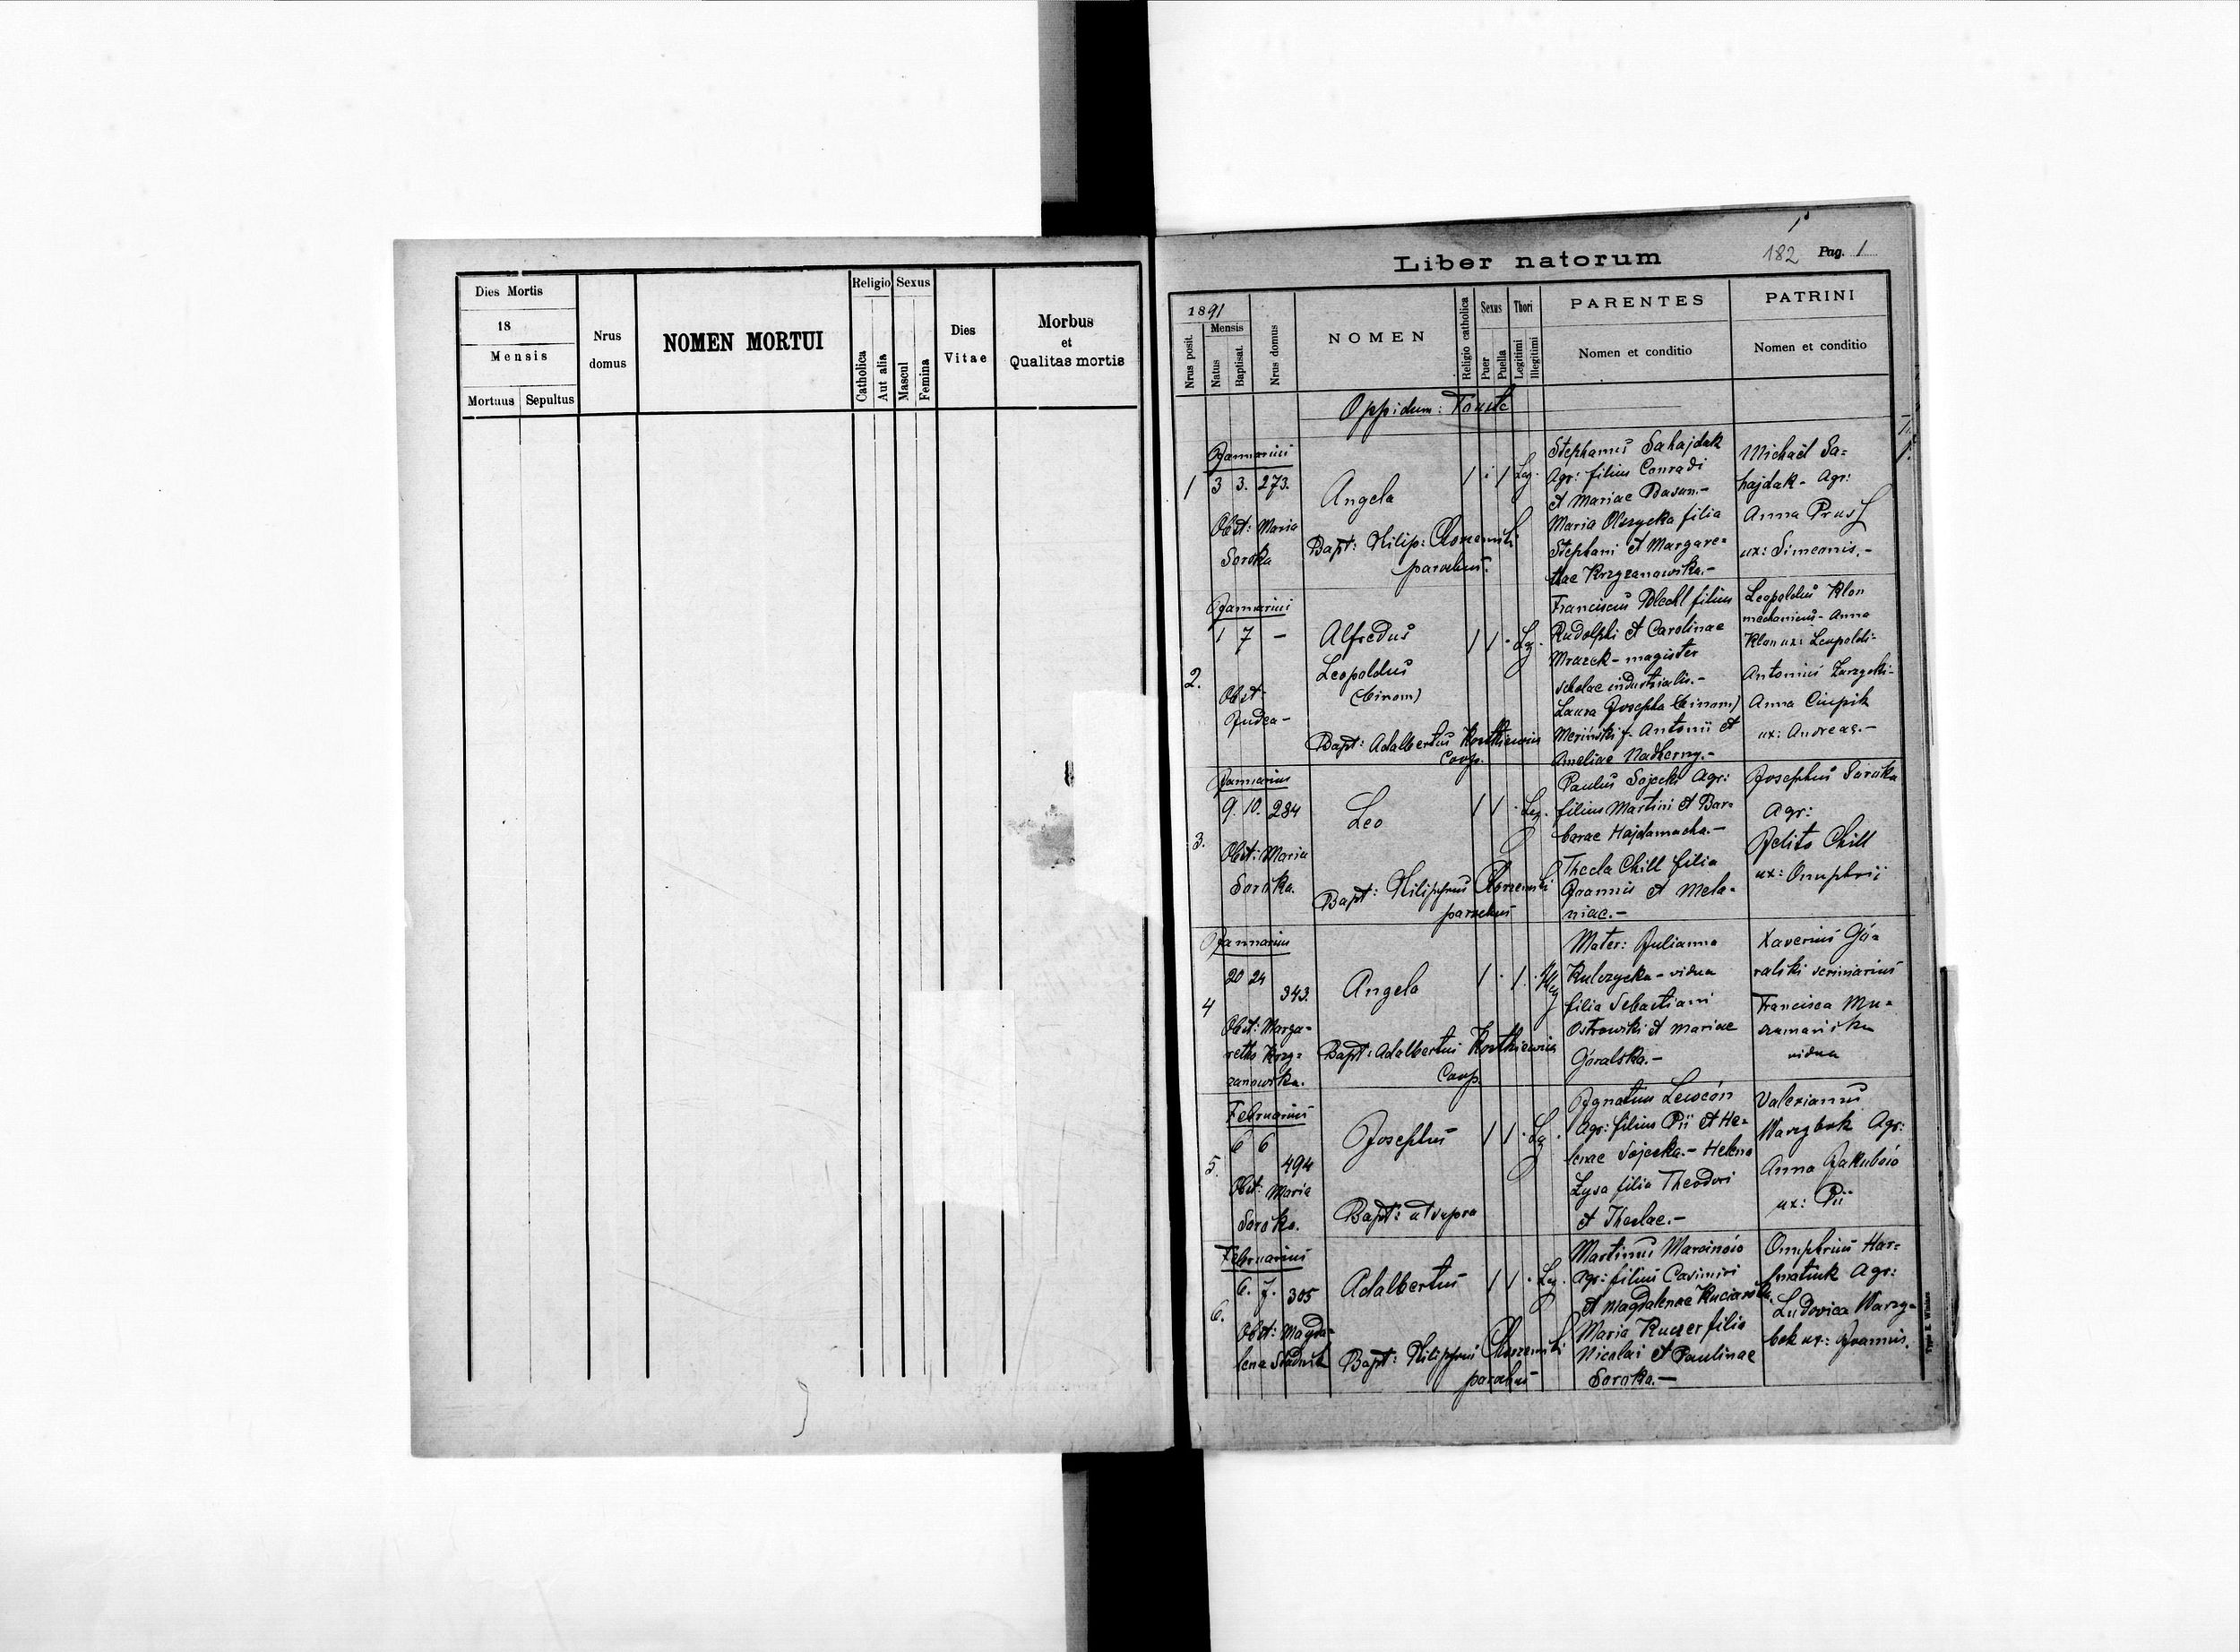 Dies Mortis
18
Mensis
Mortuus Sepultus
Nrus domus
NOMEN MORTUI
Religio Sexus
Catholica
Aut alia
Mascul
Femina
Dies Vitae
Morbus
et
Qualitas mortis
182 Pag. 1
Liber natorum
1891
Nrus posit.
Mensis
Natus
Baptisat.
Nrus domus
NOMEN
Religio catholica
Sexus
Puer
Puella
Thori
Legitimi
Illegitimi
PARENTES
Nomen et conditio
PATRINI
Nomen et conditio
Oppidum: Touste
Januarius
1 3 3. 273.
Angela
1 1 Leg.
Obst: Maria
Soroka
Bapt: Filip:
parochus.
Stephanus Sahajdak
Agr: filius Conradi
et Mariae Basan.-
Maria Olszycka filia
Stephani et Margare=
thae Krzyzanowska.-
Michaël Sa=
hajdak - Agr:
Anna Prus
ux: Simeonis.-
Januarius
2. 1 7 -
Alfredus
Leopoldus
(binom)
1 1 . Leg.
Obst:
Judea-
Bapt: Adalbertus Kostkiewicz
Coop.
Franciscus Blechl filius
Rudolphi et Carolinae
Mrazek - magister
scholae industrialis.-
Laura Josepha (binom)
Meriński f. Antonii et
Ameliae Nadherny.-
Leopoldus Klon
mechanicus - Anna
Klon ux: Leopoldi-
Antonius Zarzycki-
Anna Ciupik
ux: Andreae.-
Januarius
3. 9. 10. 284
Leo
1 1 . Leg.
Obst: Maria
Soroka.
Bapt: Filippus
parochus
Paulus Sojecki Agr:
filius Martini et Bar=
barae Hajdamacha.-
Thecla Chill filia
Joannis et Mela=
niae.-
Josephus Soroka
Agr:
Chill
ux: Onuphrii
Januarius
4 20 24 343.
Angela
1 . 1 . Illeg
Obst: Marga=
retha Krzy=
zanowska.
Bapt: Adalbertus Kostkiewicz
Coop.
Mater: Julianna
Kulczycka - vidua
filia Sebastiani
Ostrowski et Mariae
Goralska.-
Xaverius Gó=
ralski scriniarius
Francisca Mu=
vidua
Februarius
5. 6 6 494
Josephus
1 1 . Leg.
Obst: Maria
Soroka.
Bapt: ut supra
Ignatius Lewcón
Agr: filius Pii et He=
lenae Sojecka.- Helena
Łysa filia Theodori
et Theclae.-
Valerianus
Warzybok Agr:
Anna Jakubcio
ux: Pii
Februarius
6. 6. 7. 305
Adalbertus
1 1 . Leg.
Obst: Magda=
lena Stadnik
Bapt: Filippus
parochus
Martinus Marcincio
Agr: filius Casimiri
et Magdalenae
Maria Kuczer filia
Nicolai et Paulinae
Soroka.-
Onuphrius Har=
matiuk Agr:
Ludovica Warzy=
bok ux: Joannis.
Typis E. Winiarz